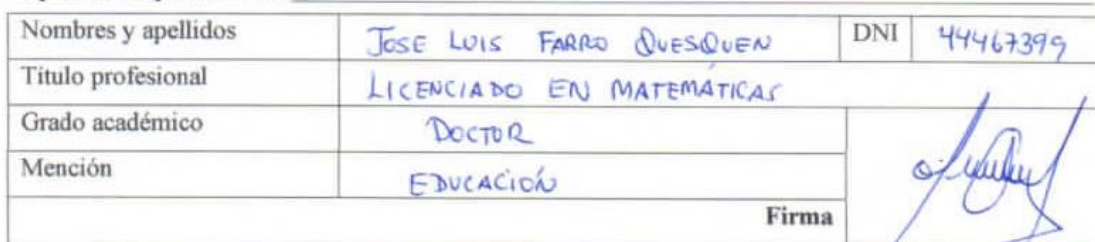 Nombres y apellidos JOSE LUIS FARRO QUESQUEN DNI 44467399
Título profesional LICENCIADO EN MATEMÁTICAS
Grado académico DOCTOR
Mención EDUCACIÓN
Firma